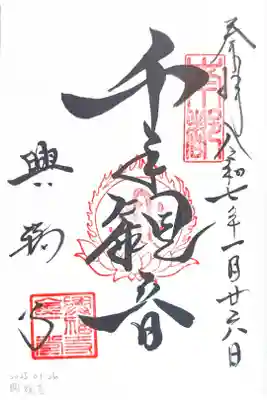 奉拝 令和七年一月廿六日
千手観音
興福寺
2025.01.26
興福寺